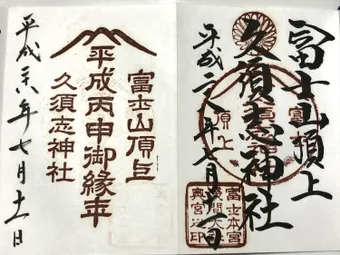 冨士山頂上
久須志神社
平成二八年七月十一日
富士本宮
淺間大社
奥宮之印
富士山頂上
平成丙申御縁年
久須志神社
平成二八年七月十一日